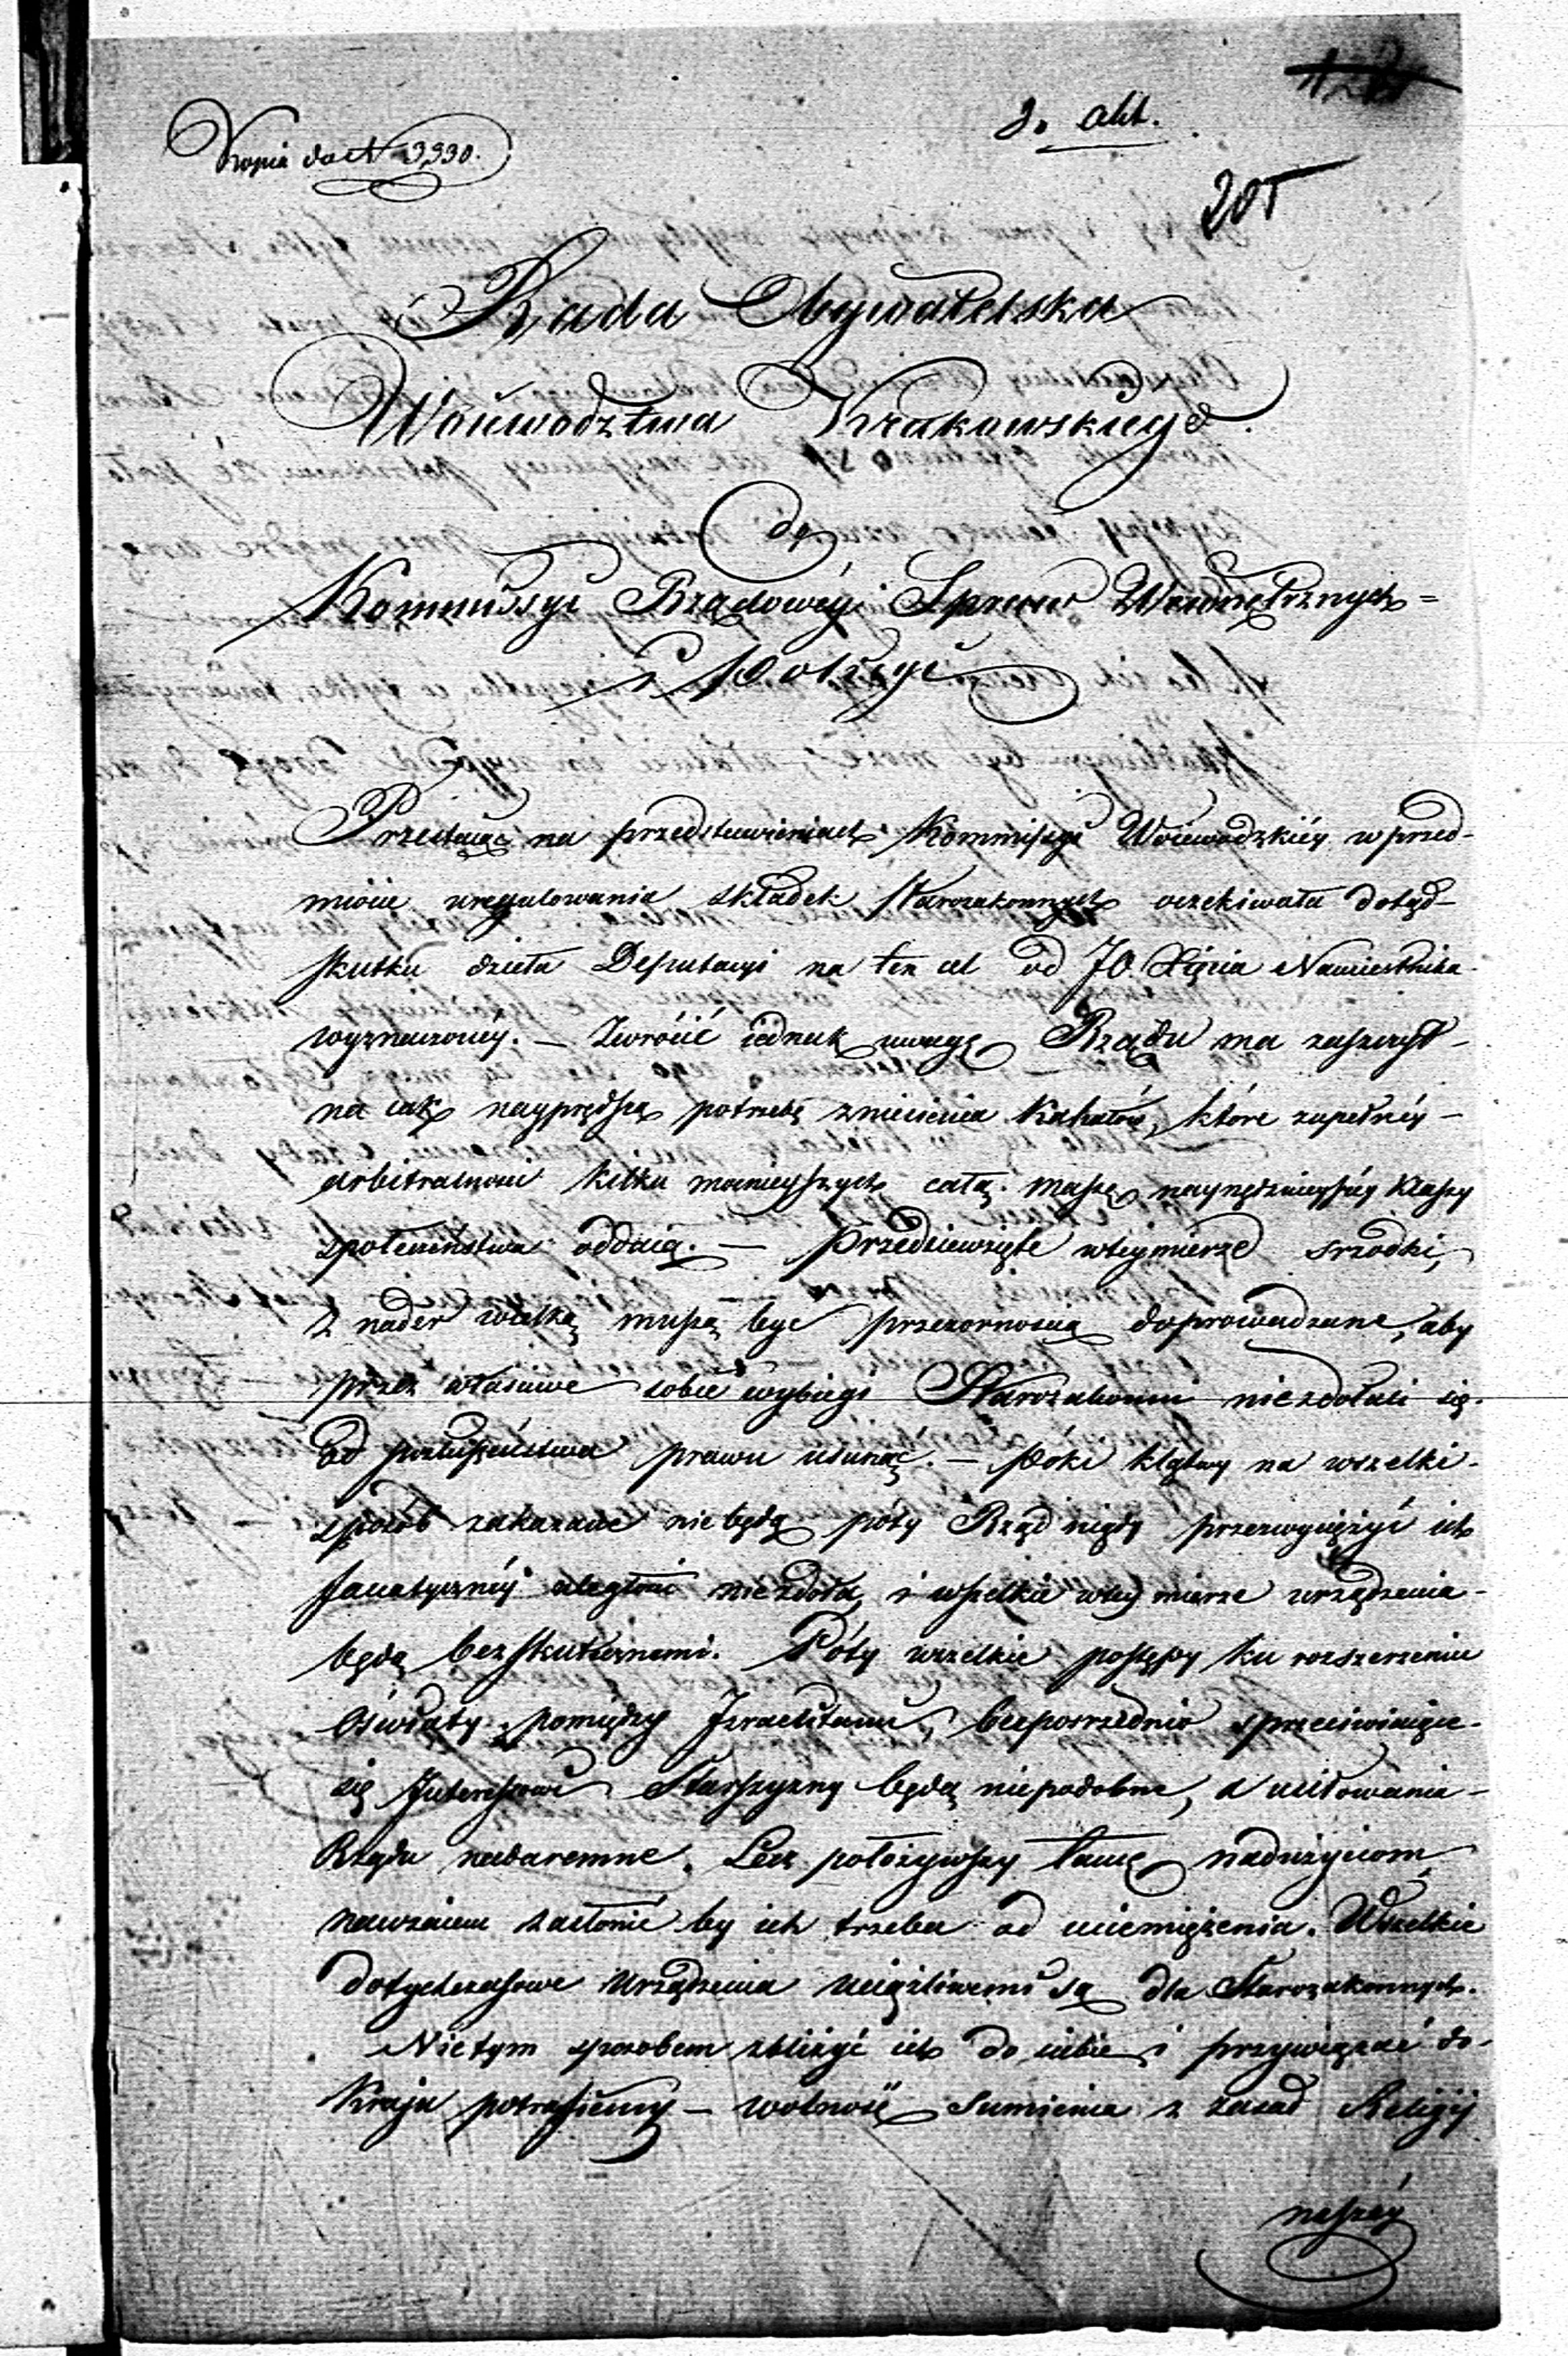 Kopia do N 3,930.
3. akt.
205
Rada Obywatelska
Woiewodztwa Krakowskiego.
do
Kommissyi Rządowéy Spraw Wewnętrznych=
i Policyi
Przestaiąc na przedstawieniach Kommissyi Woiewodzkiéy w przed-
miocie uregulowania składek Starozakonnych oczekiwała dotąd-
skutku dzieła Deputacyi na ten cel od JO. Xięcia Namiestnika-
wyznaczonéy. — Zwrócić iednak uwagę Rządu ma zaszczyt-
na iak nayprędszą potrzebę zniesienia Kahałów, które zupełnéy-
arbitralności kilku możnieyszych całą massę naynędznieyszéy klassy
społeczeństwa oddaią. — Przedsiewzięte wteymierze srzodki,
z nader wielką muszą być przezornością doprowadzane, aby
przez właściwe sobie wybiegi Starozakonni niezdołali się-
od posłuszeństwa prawu usunąć. — Póki klątwy na wszelki-
sposób zakazane niebędą póty Rząd nigdy przezwyciężyć ich
fanatycznéy uległości niezdoła, i wszelkie wtey mierze urządzenia-
będą bezskutecznemi. Póty wszelkie postępy ku rozszerzeniu
Oświaty pomiędzy Izraelitami, bezposrzednio sprzeciwiaiące-
się Interessowi Starszyzny będą niepodobne, a usiłowania-
Rządu nadaremne. Lecz położywszy tamę nadużyciom
nawzaiem zasłonić by ich trzeba od uciemiężenia. Wszelkie
dotychczasowe Urządzenia uciążliwemi są dla Starozakonnych.
Nietym sposobem zbliżyć ich do siebie i przywiązać do-
Kraju potrafiemy — wolność Sumienia z zasad Religij
naszéy